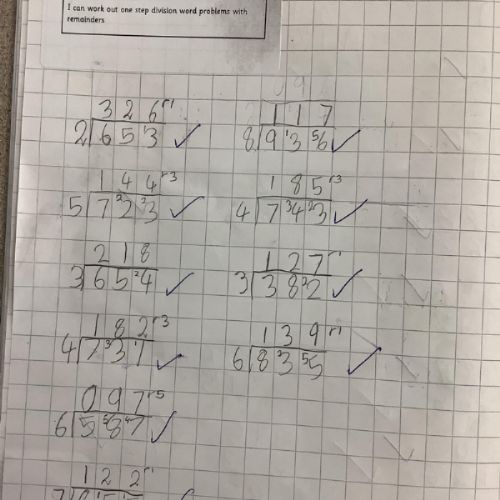 I can work out one step division word problems with
remainders
3 2 6 r1
2 6 5 ¹3
1 1 7
8 9 ¹3 ⁵6
1 4 4 r3
5 7 ²2 ²3
1 8 5 r3
4 7 ³4 ²3
2 1 8
3 6 5 ²4
1 2 7 r1
3 3 8 ²2
1 8 2 r3
4 7 ³3 ¹1
1 3 9 r1
6 8 ²3 ⁵5
0 9 7 r5
6 5 ⁵8 ⁴7
1 2 2 r1